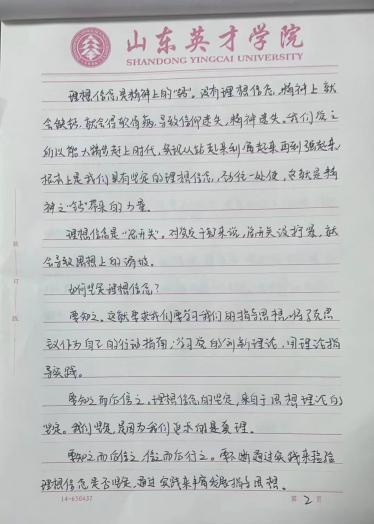 山东英才学院
SHANDONG YINGCAI UNIVERSITY
理想信念是精神上的“钙”。没有理想信念,精神上就
会缺钙,就会得软骨病,导致信仰迷失,精神迷失。我们党之
所以能大踏步赶上时代,实现从站起来到富起来再到强起来,
根本上是我们具有坚定的理想信念,
神之“钙”带来的力量。
理想信念是“总开关”。对党员干部来说,总开关没拧紧,就
会导致思想上的滑坡。
如何坚定理想信念?
要知之。这就要求我们要学习我们的指导思想,将马克思
主义作为自己的行动指南,学习党的创新理论,用理论指
导实践。
要知之而后信之。理想信念的坚定,来自于思想理论的
坚定。我们坚定是因为我们追求的是真理。
要知之而后信之,信之而后行之。要不断通过实践来检验
理想信念是否坚定,通过实践来丰富发展指导思想。
装
订
线
14-650437
第 2 页